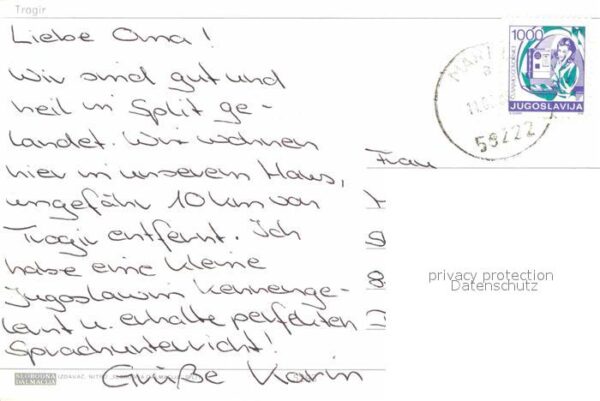 Trogir
Liebe Oma!
Wir sind gut und
heil in Split ge-
landet. Wir wohnen
hier in unserem Haus,
ungefähr 10 km von
Trogir entfernt. Ich
habe eine kleine
Jugoslawin kennenge-
lernt u. erhalte perfekten
Sprachunterricht!
Grüße Karin
1000
JUGOSLAVIJA
58222
Frau
privacy protection
Datenschutz
SLOBODNA
DALMACIJA
IZDAVAČ